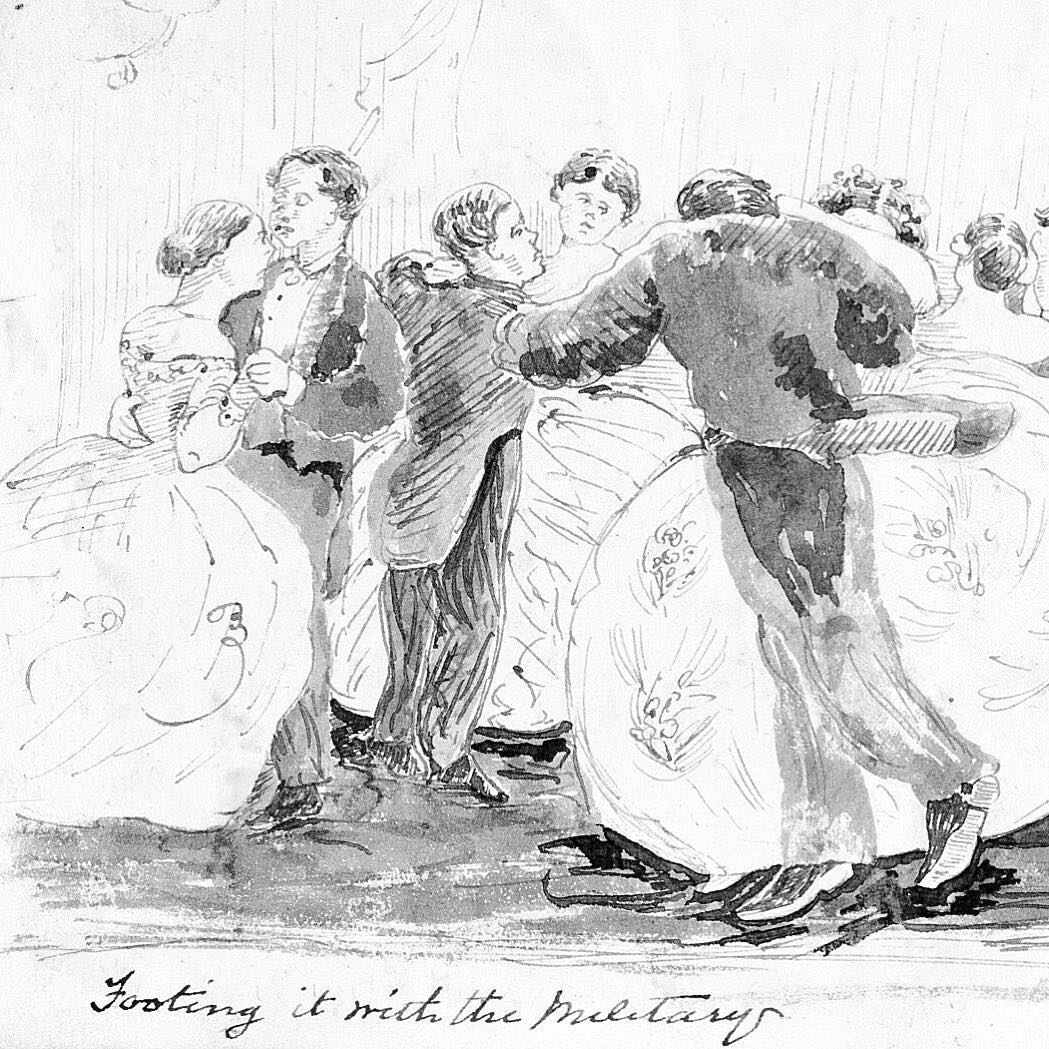 Footing it with the Military